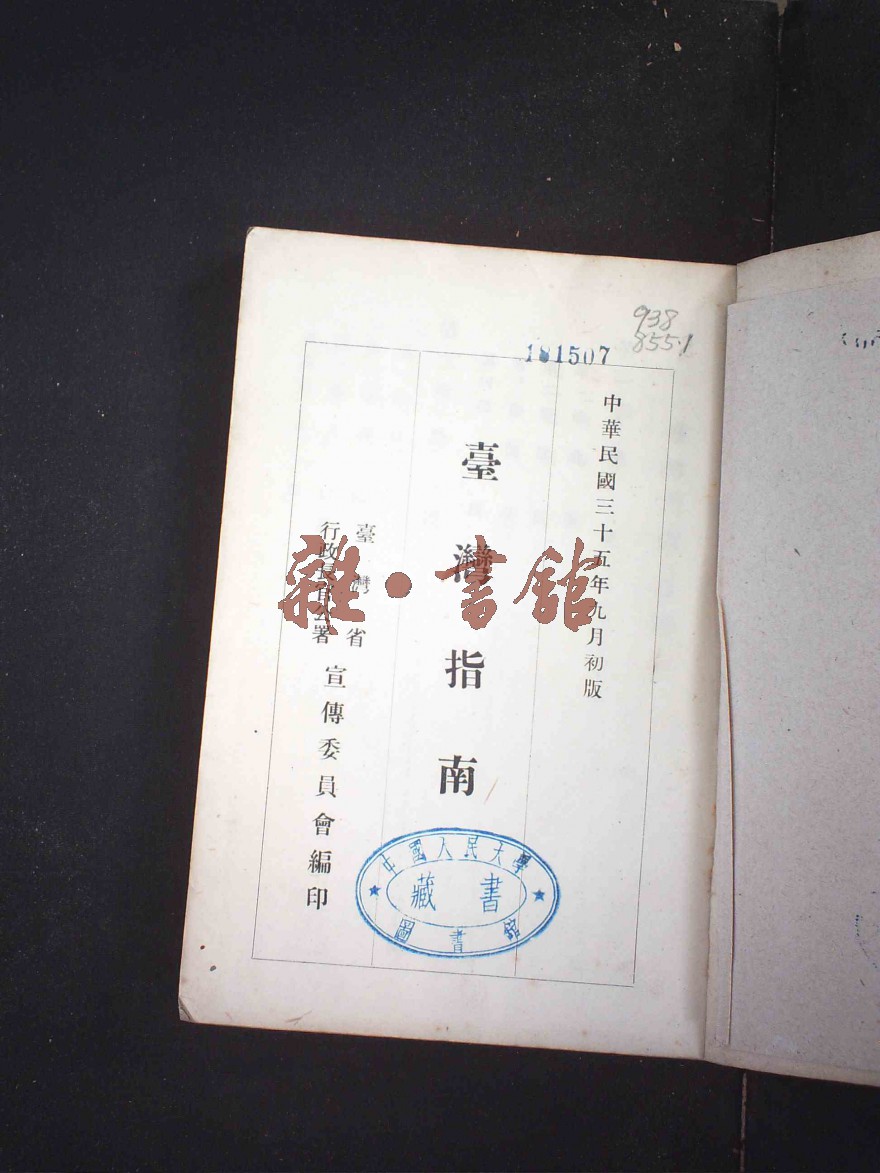 938
855.1
181507
中華民國三十五年九月初版
臺灣指南
臺灣省
行政長官公署
宣傳委員會編印
雜·書館
中國人民大學
藏書
圖書館